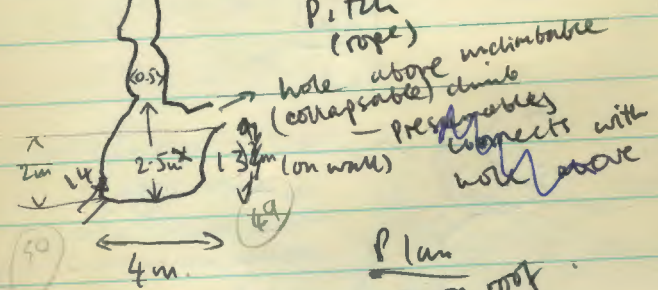 Pitch
(rope)
<0.5>
hole above unclimbable
(collapsable) climb
— presumables
connects with
hole above
2m
14
2.5m
(on wall)
49
50
4m.
Plan
roof